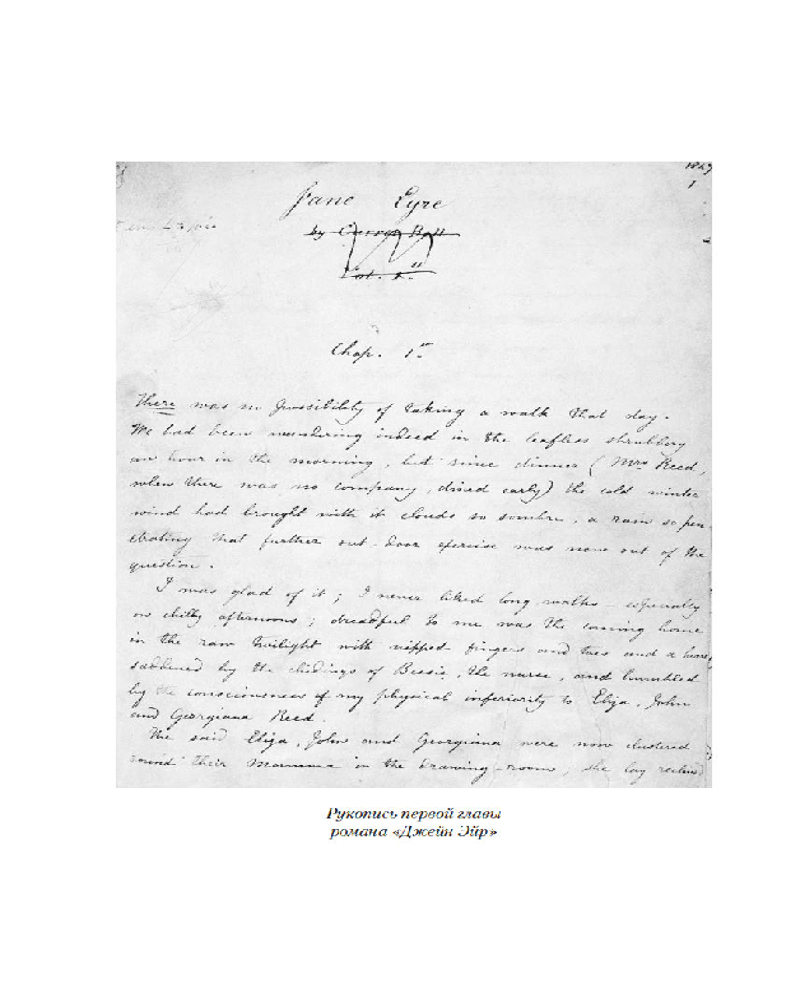 1847
1
Jane Eyre
by Currer Bell
Vol. 1.
Chap. 1st
There was no possibility of taking a walk that day.
We had been wandering indeed in the leafless shrubbery
an hour in the morning, but since dinner (Mrs Reed,
when there was no company, dined early) the cold winter
wind had brought with it clouds so sombre, a rain so pene
trating that further out-door exercise was now out of the
question.
I was glad of it; I never liked long walks - especially
on chilly afternoons; dreadful to me was the coming home
in the raw twilight with nipped fingers and toes and a heart
saddened by the chidings of Bessie, the nurse, and humbled
by the consciousness of my physical inferiority to Eliza, John
and Georgiana Reed.
The said Eliza, John and Georgiana were now clustered
round their Mamma in the drawing-room; she lay reclined
Рукопись первой главы
романа «Джейн Эйр»